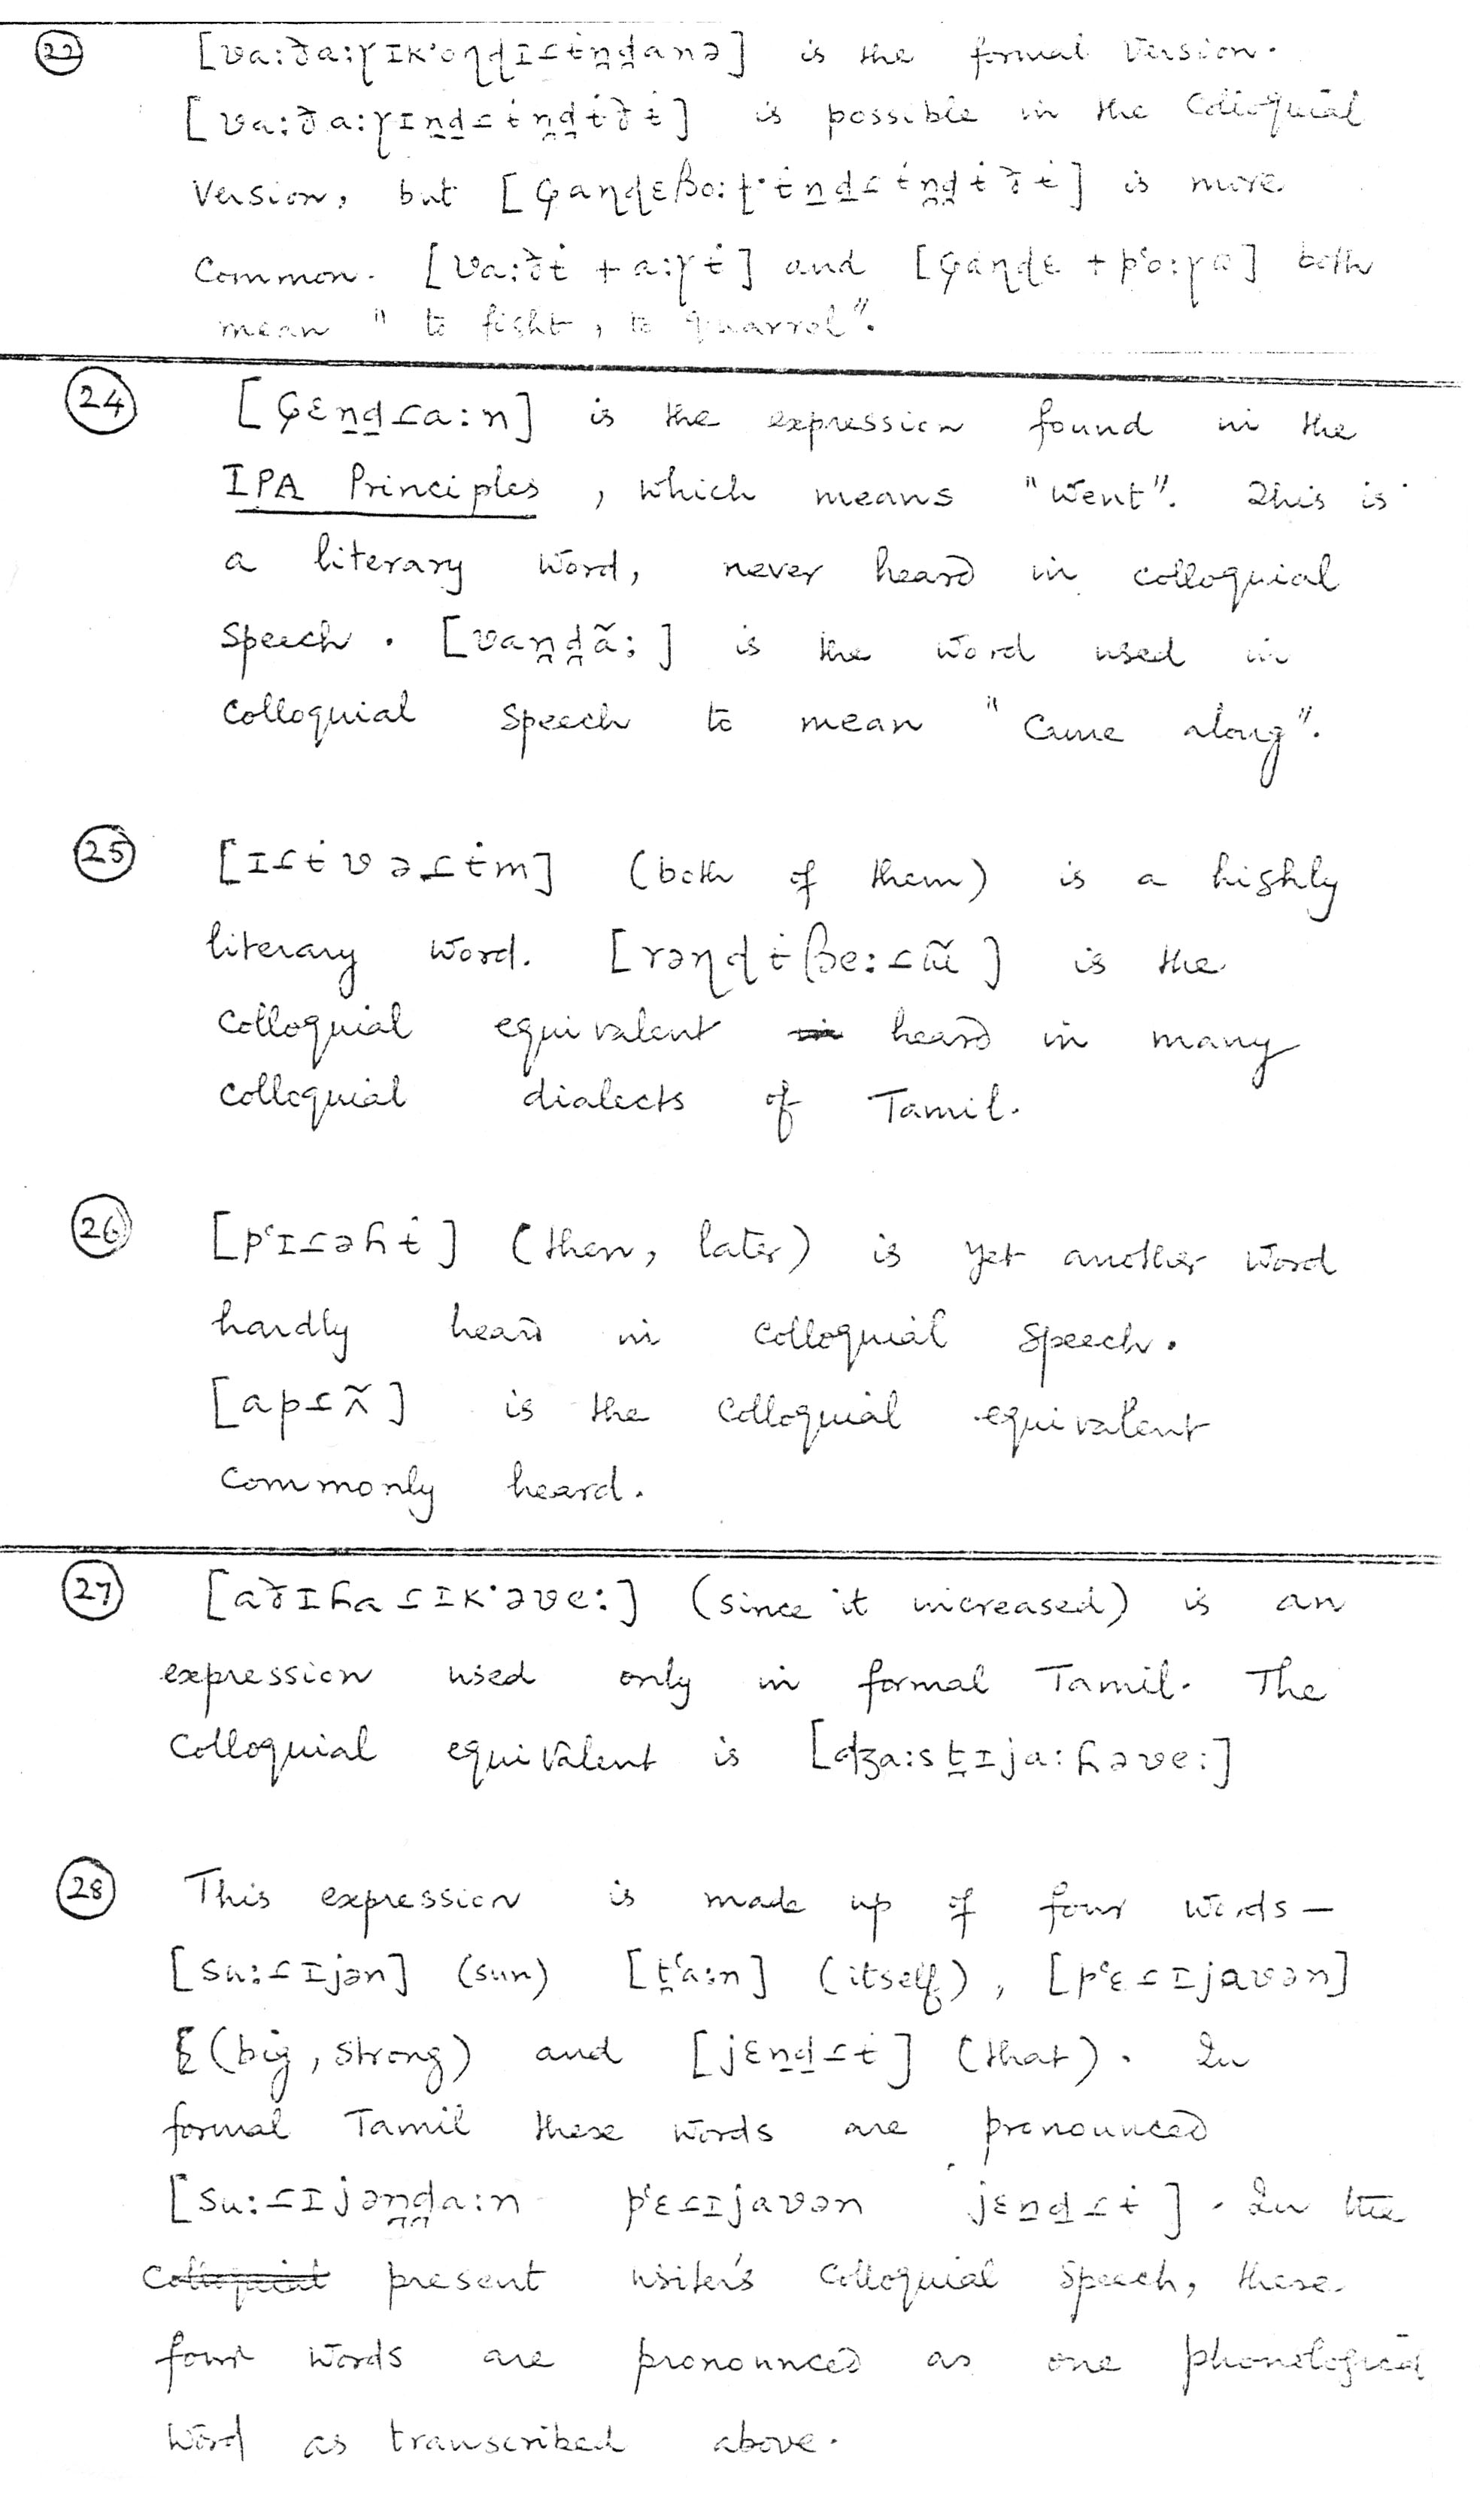 22 [ʋaːð̆aːɻɪK˓oɳɖɪɾɨn̪d̪anə] is the formal version.
[ʋaːð̆aːɻɪn̠d̠ɾɨn̪d̪ɨð̆ɨ] is possible in the colloquial
version, but [ꞔaɳɖɛβoːʈ˙ɨn̠d̠ɾɨn̪d̪ɨð̆ɨ] is more
common. [ʋaːð̆ɨ + aːɻɨ] and [ꞔaɳɖɛ + p˓oːɻɷ] both
mean "to fight, to quarrol".
24 [ꞔɛn̠d̠ɾaːn] is the expression found in the
IPA Principles, which means "went". This is
a literary word, never heard in colloquial
speech. [ʋan̪d̪ãː] is the word used in
colloquial speech to mean "came along".
25 [ɪɾɨʋəɾɨm] (both of them) is a highly
literary word. [rəɳɖɨβeːɾɯ̃] is the
colloquial equivalent heard in many
colloquial dialects of Tamil.
26 [p˓ɪɾəɦɨ] (then, later) is yet another word
hardly heard in colloquial speech.
[apɾʌ̃] is the colloquial equivalent
commonly heard.
27 [að̆ɪɦaɾɪK˙əʋeː] (since it increased) is an
expression used only in formal Tamil. The
colloquial equivalent is [ʤaːst̪ɪjaːɦəʋeː]
28 This expression is made up of four words —
[suːɾɪjən] (sun) [t̪˓aːn] (itself), [p˓ɛɾɪjaʋən]
(big, strong) and [jɛn̠d̠ɾɨ] (that). In
formal Tamil these words are pronounced
[suːɾɪjən̪d̪aːn p˓ɛɾɪjaʋən jɛn̠d̠ɾɨ]. In the
colloquial present writer's colloquial speech, these
four words are pronounced as one phonological
word as transcribed above.